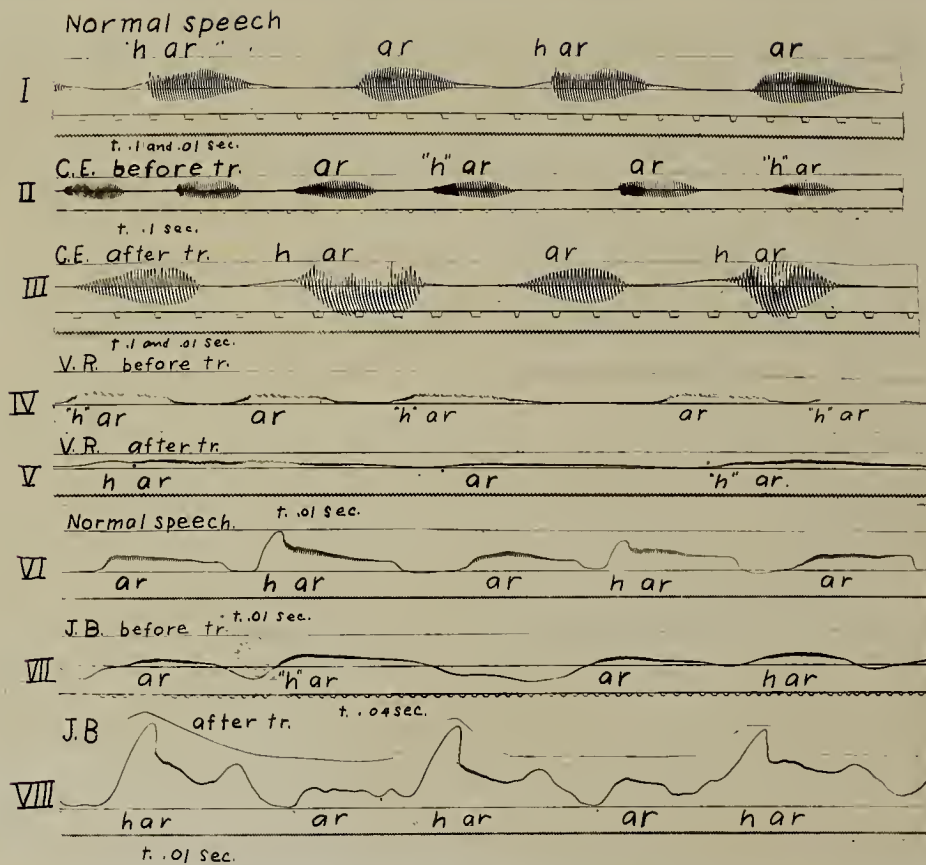 Normal speech
"h ar" ar h ar ar
I
t. .1 and .01 sec.
C.E. before tr. ar "h" ar ar "h" ar
II
t. .1 sec.
C.E. after tr. h ar ar h ar
III
t .1 and .01 sec.
V.R. before tr.
IV
"h" ar ar "h" ar ar "h" ar
V.R. after tr.
V
h ar ar "h" ar.
t. .01 sec.
Normal speech.
VI
ar h ar ar h ar ar
t. .01 sec.
J.B. before tr.
VII
ar "h" ar ar h ar
t. .04 sec.
J.B after tr.
VIII
h ar ar h ar ar h ar
t. .01 sec.